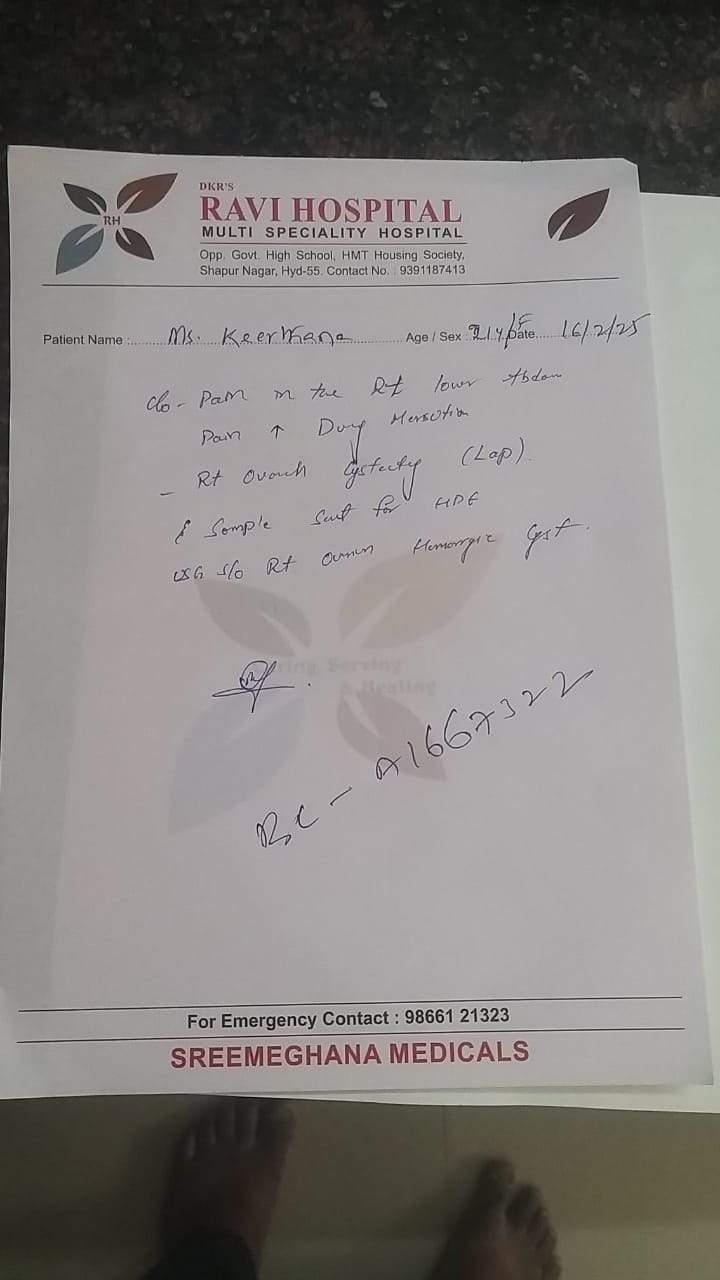 RH
DKR'S
RAVI HOSPITAL
MULTI SPECIALITY HOSPITAL
Opp. Govt. High School, HMT Housing Society,
Shapur Nagar, Hyd-55. Contact No. : 9391187413
Patient Name :.......... Ms. Keerthana .......... Age / Sex : 21y/F Date..... 16/2/25
c/o - Pain in the Rt lower Abdom
Pain ↑ During
- Rt Cystectomy (Lap).
& Sample sent for HPE
USG s/o Rt Hemorrgic Cyst.
Serving
& Healing
BC - A1667322
For Emergency Contact : 98661 21323
SREEMEGHANA MEDICALS